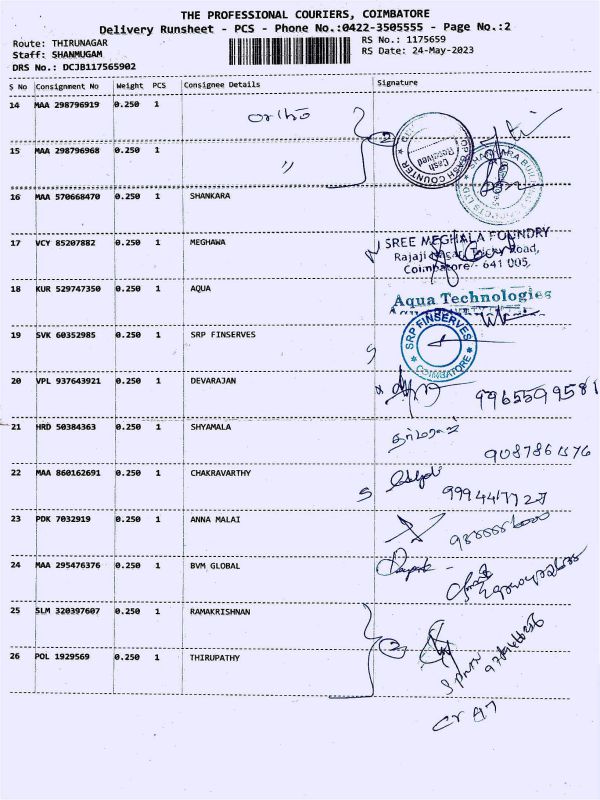 THE PROFESSIONAL COURIERS, COIMBATORE
Delivery Runsheet - PCS - Phone No.:0422-3505555 - Page No.:2
Route: THIRUNAGAR
RS No.: 1175659
Staff: SHANMUGAM
RS Date: 24-May-2023
DRS No.: DCJB117565902
S No Consignment No Weight PCS Consignee Details Signature
14 MAA 298796919 0.250 1 ortho
2
CASH COUNTER
Cash Received
15 MAA 298796968 0.250 1 〃
16 MAA 570668470 0.250 1 SHANKARA
17 VCY 85207882 0.250 1 MEGHAWA
SREE MEGHALA FOUNDRY
Rajaji Nagar, Trichy Road,
Coimbatore - 641 005.
18 KUR 529747350 0.250 1 AQUA
Aqua Technologies
19 SVK 60352985 0.250 1 SRP FINSERVES
SRP FINSERVES
COIMBATORE
20 VPL 937643921 0.250 1 DEVARAJAN
9965599581
21 HRD 50384363 0.250 1 SHYAMALA
22 MAA 860162691 0.250 1 CHAKRAVARTHY
23 PDK 7032919 0.250 1 ANNA MALAI
24 MAA 295476376 0.250 1 BVM GLOBAL
25 SLM 320397607 0.250 1 RAMAKRISHNAN
2
26 POL 1929569 0.250 1 THIRUPATHY